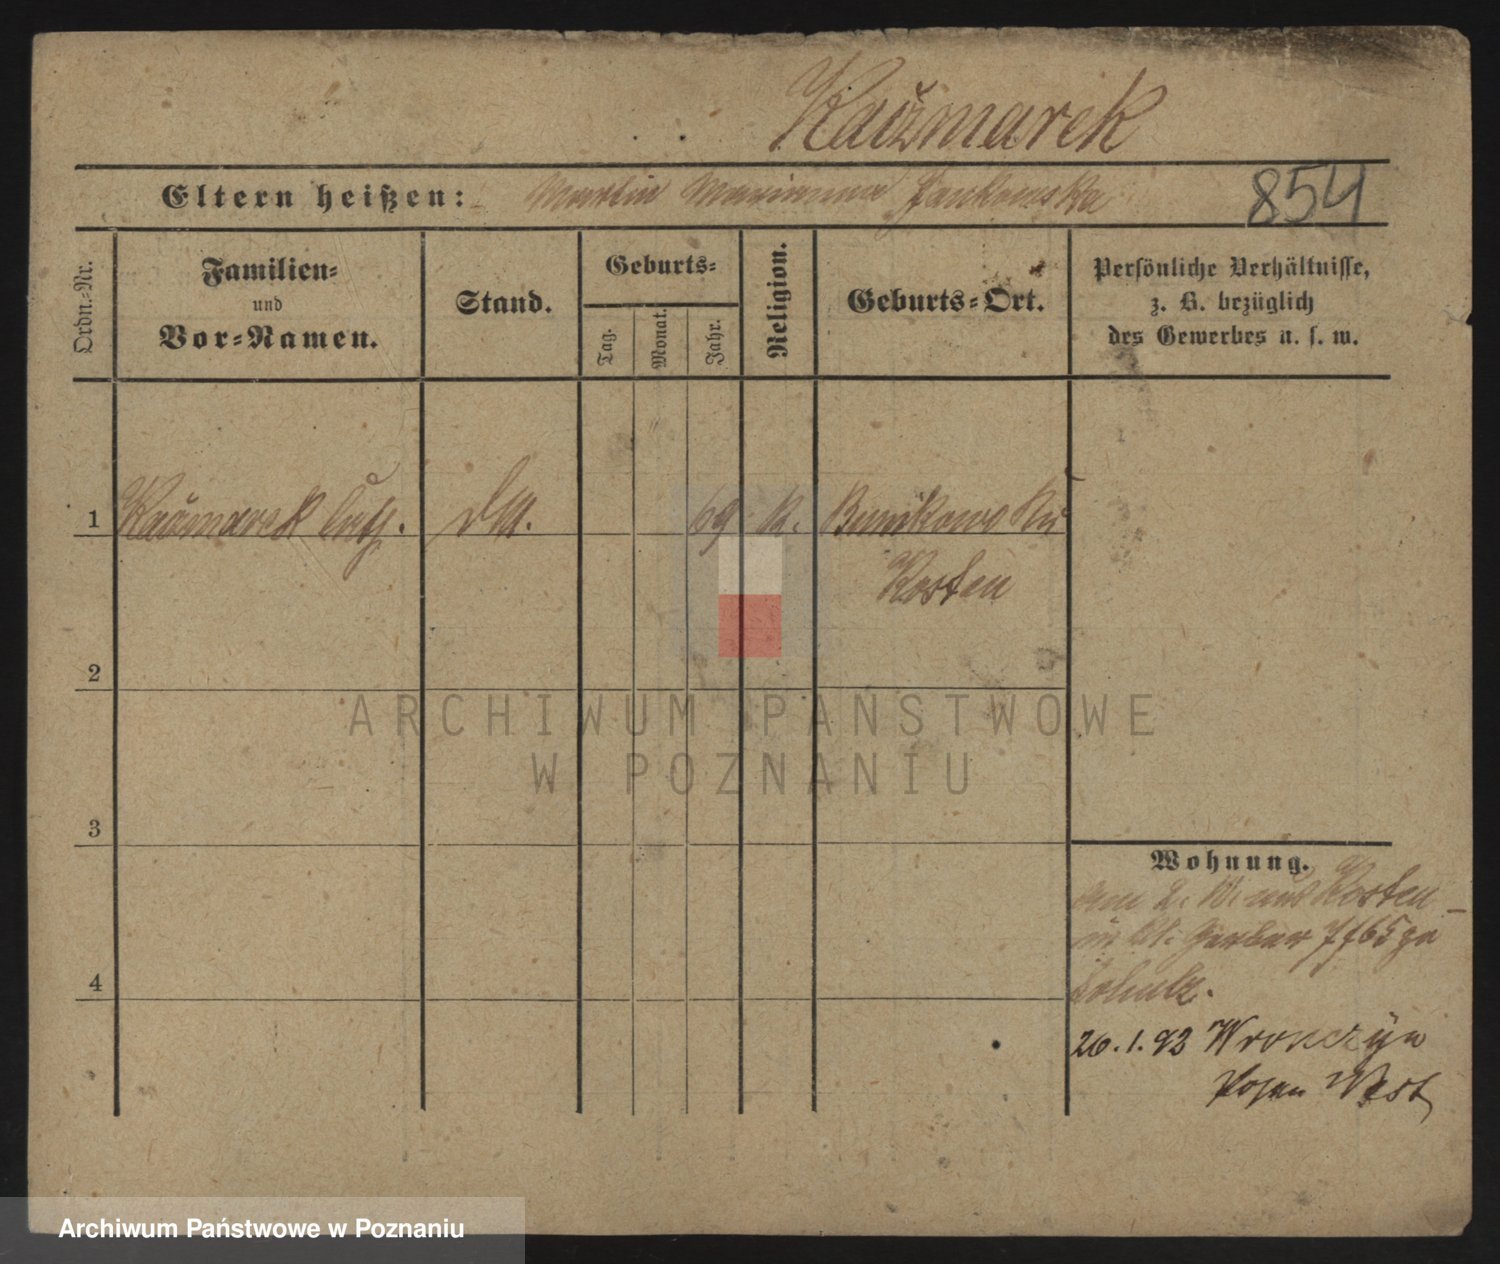 Kaczmarek
Eltern heißen: Martin Marianna Jankowska
854
Ordn.-Nr.
Familien-
und
Vor-Namen.
Stand.
Geburts-
Tag.
Monat.
Jahr.
Religion.
Geburts-Ort.
Persönliche Verhältnisse,
z. B. bezüglich
des Gewerbes u. s. w.
1 Kaczmarek Cath. DM. 69 K. Bunikowo Kr
Kosten
2
3
4
Wohnung.
am 2. aus Kosten
Gerber 7 f 65 ga
Scholz.
26.1.93 Wronczyn
Posen West
ARCHIWUM PAŃSTWOWE
W POZNANIU
Archiwum Państwowe w Poznaniu